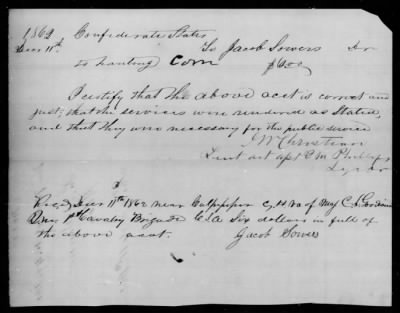 1862 Confederate States
Decr 11th To Jacob Sowers Dr
to hauling Corn $6.00
I certify that the above acct is correct and
just; that the services were rendered as stated,
and that they were necessary for the public service
Christian
Lieut act
Recd, Decr 11th 1862 near Culpepper C, H, Va of Maj C.
1st Cavalry Brigade CSA Six dollars in full of
the above acct.
Jacob Sowers